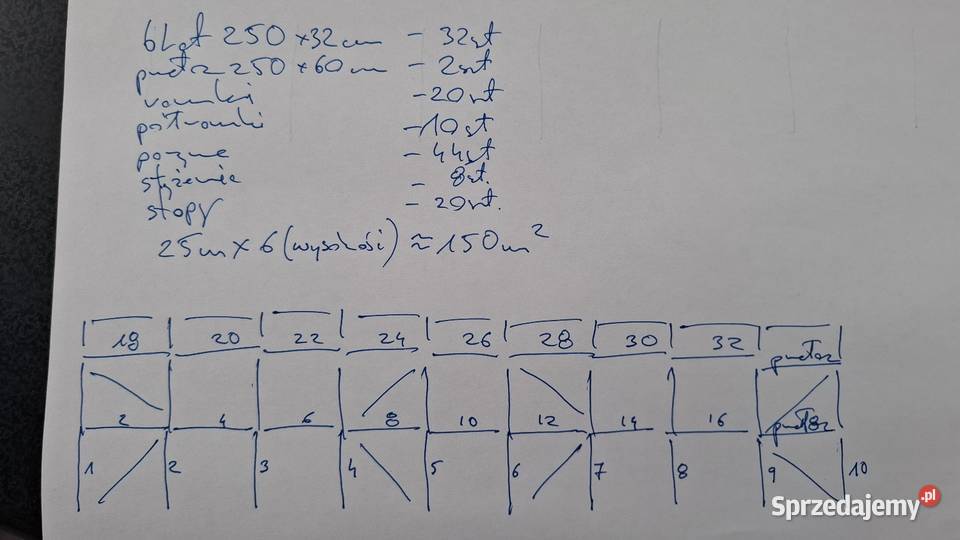 blat 250 x 32 cm - 32szt
250 x 60 cm - 2szt
ramki - 20szt
półramki - 10szt
- 44szt
stężenie - 8szt.
stopy - 20szt.
25m x 6 (wysokości) ≈ 150m²
18 20 22 24 26 28 30 32
2 4 6 8 10 12 14 16
1 2 3 4 5 6 7 8 9 10
Sprzedajemy.pl